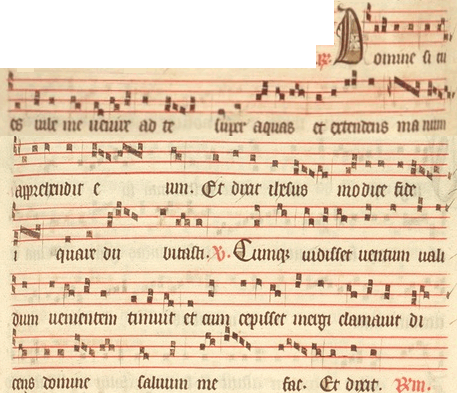 Domine si tu
es iube me uenire ad te super aquas et extendens manum
apprehendit eum. Et dixit ihesus modice fide
i quare dubitasti. V. Cumque uidisset uentum uali
dum uenientem timuit et cum cepisset mergi clamauit di
cens domine saluum me fac. Et dixit.